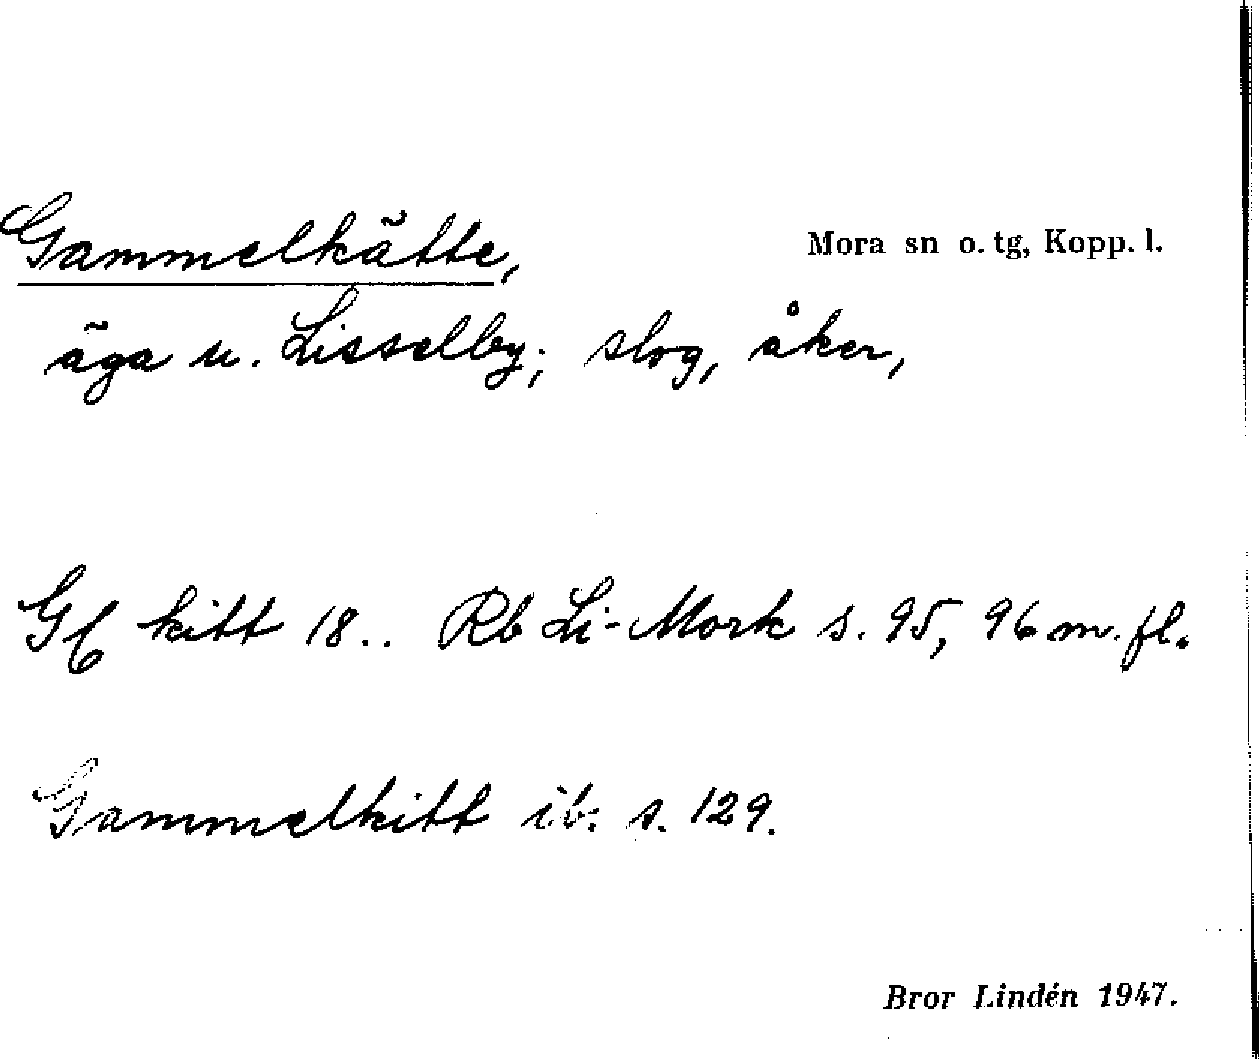 Gammelkätte,
Mora sn o. tg, Kopp. l.
äga u. Lisselby; slog, åker,
Gl kitt 18.. Rb Li-Mork s. 95, 96 m. fl.
Gammelkitt ib. s. 129.
Bror Lindén 1947.